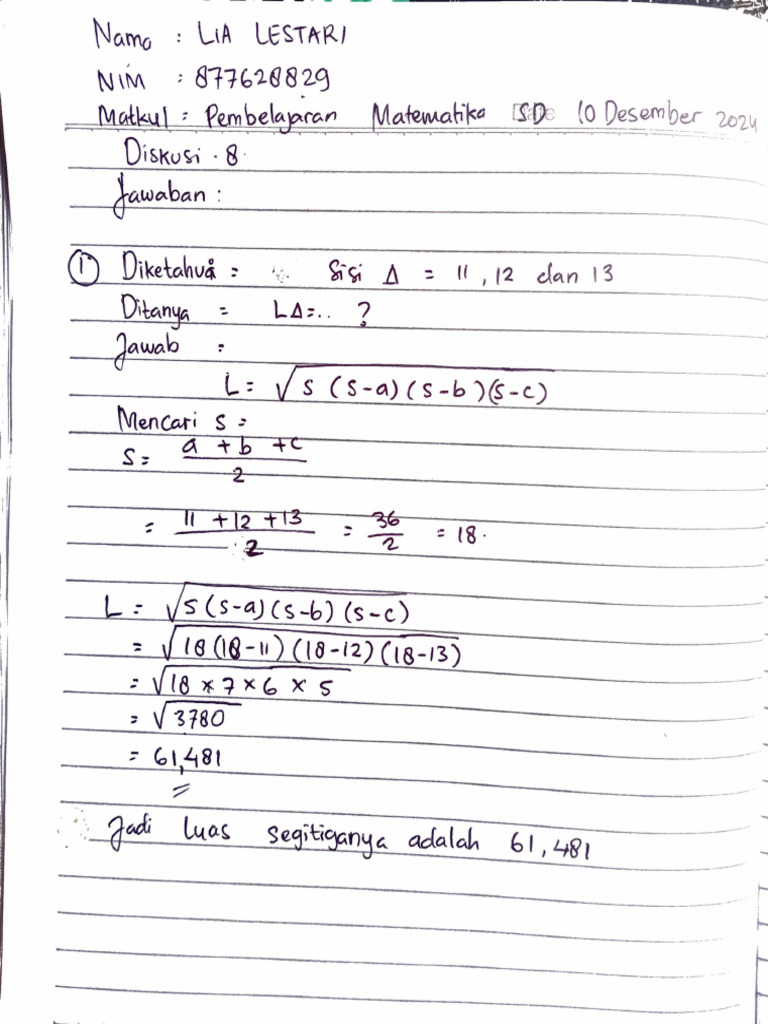 Nama : LIA LESTARI
NIM : 877628829
Matkul : Pembelajaran Matematika SD 10 Desember 2024
Diskusi . 8
Jawaban :
① Diketahui = Sisi Δ = 11, 12 dan 13
Ditanya = LΔ=.. ?
Jawab :
L = √s (s-a) (s-b) (s-c)
Mencari s =
s = a + b + c / 2
= 11 + 12 + 13 / 2 = 36 / 2 = 18.
L = √s (s-a) (s-b) (s-c)
= √18 (18-11) (18-12) (18-13)
= √18 × 7 × 6 × 5
= √3780
= 61,481
Jadi luas segitiganya adalah 61,481